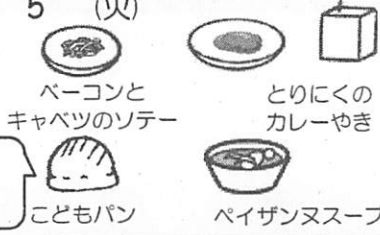 5 (火)
ベーコンと
キャベツのソテー
とりにくの
カレーやき
こどもパン
ペイザンヌスープ